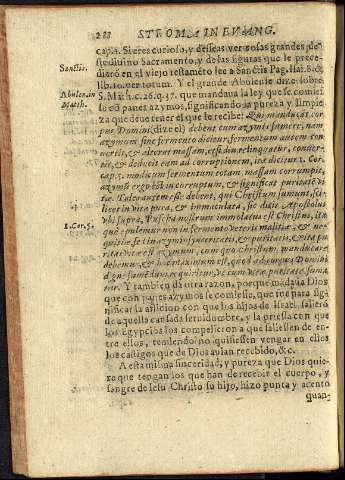 288 STROMA IN EVANG.
cap.2. Si eres curioso, y desseas ver cosas grandes deste
diuino Sacramento, y de las figuras que le prece-
dierõ en el viejo testamẽto lee a Sanctis Pag.
Sanctis.
lib. 10. per totum. Y el grande Abulense dize sobre
Abulen. in Matth.
S. Math. c. 26. q. 37. que mandaua la ley que se comies
se cõ panes azymos, significando la pureza y limpie
za que deue tener el que le recibe: Qui manducãt, cor
pus Domini (dize el) debent cum azymis sumere, nam
azymum sine fermento dicitur, fermentum autem con
uertit, et alterat massam, et si diu relinquatur, conuer-
tit, et deducit eam ad corruptionem, ita dicitur 1. Cor.
cap. 5. modicum fermentum totam, massam corrumpit,
azymũ ergo est in corruptum, et significat puritatẽ vi
tiæ. Tales autem esse debent, qui Christum sumunt, scilicet
in vita pura, et immaculata, sic dicit Apostolus
1. Cor. 5.
vbi supra, Pascha nostrum immolatus est Christus, ita
que epulemur non in fermento veteris malitiæ, et ne-
quitiæ sed in azymis synceritatis, et puritatis, et vita pu
ritas vitæ est azymum, cum quo Christum manducare
debemus, et
digne sumẽdus requiritur, vt cum vitæ puritate suma
tur. Y tambien da otra razon, porque madaua Dios
que con panes azymos le comiesse, que fue para sig-
nificar la aflicion con que los hijos de Israel salierõ
de aquella cansada seruidumbre, y la priessa con que
los Egypcios los compelieron a que saliessen de en-
tre ellos, temiendo no quisiessen vengar en ellos
los castigos que de Dios auian recebido, &c.
A esta misma sinceridad, y pureza que Dios quie-
ro que tengan los que han de recebir el cuerpo, y
sangre de Iesu Christo su hijo, hizo punta y acento
quan-